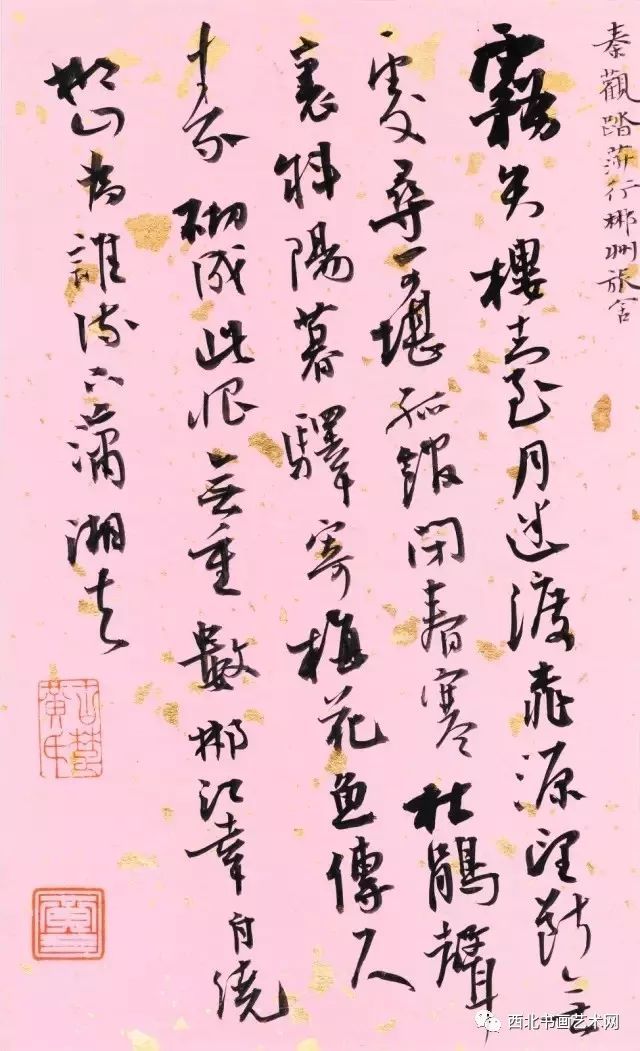 秦觀踏莎行郴州旅舍
霧失樓臺月迷渡桃源望斷無
處尋可堪孤館閉春寒杜鵑聲
裏斜陽暮驛寄梅花魚傳尺
素砌成此恨無重數郴江幸自繞
郴山為誰流下瀟湘去
西北书画艺术网